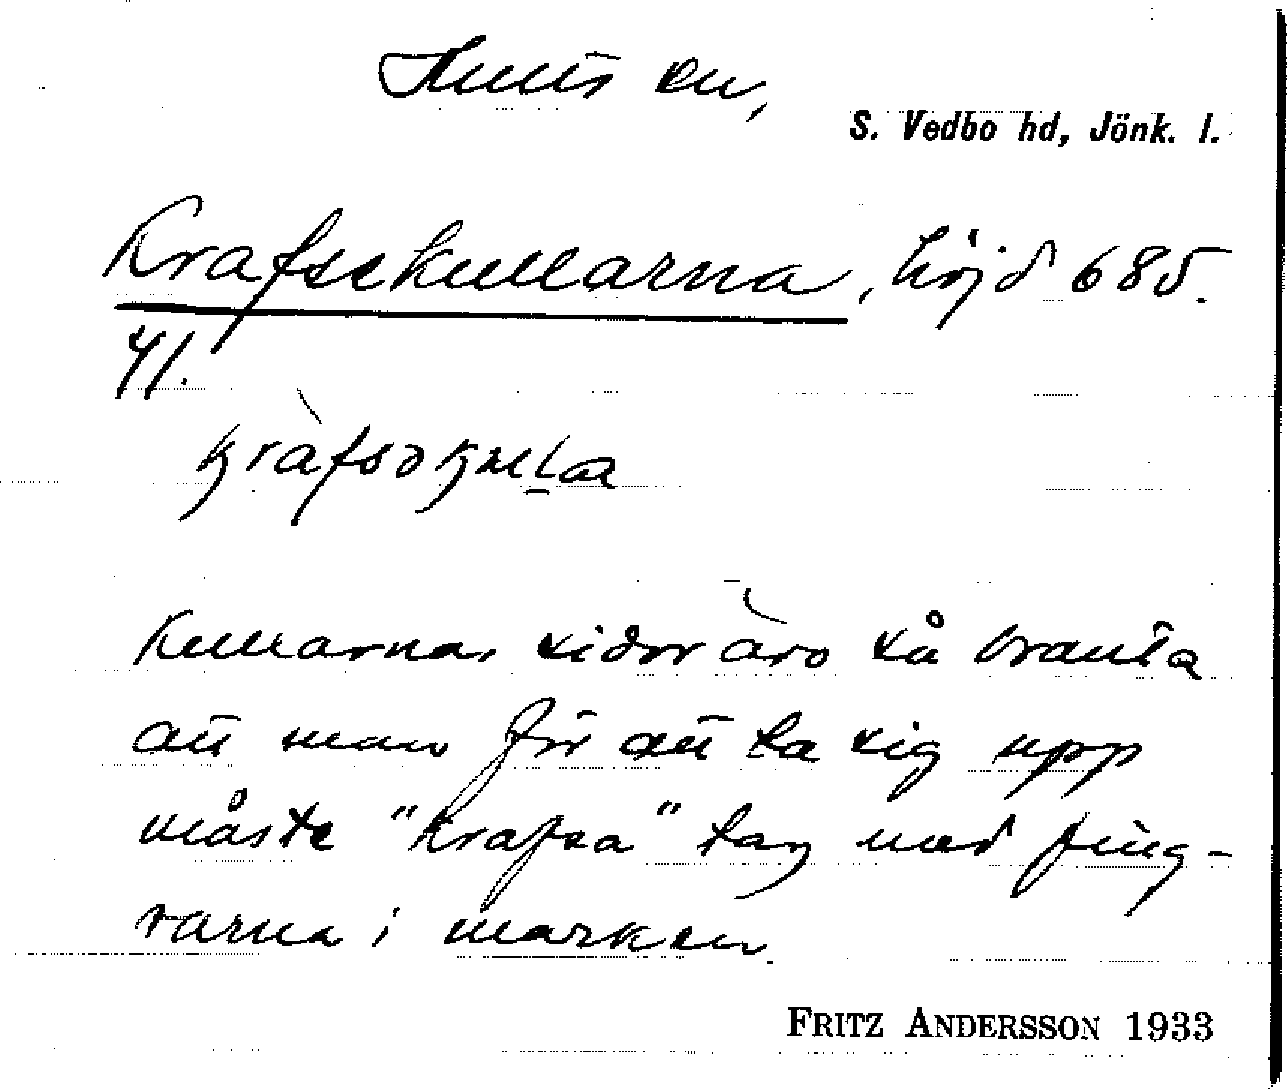 Hults sn,
S. Vedbo hd, Jönk. l.
Krafsekullarna, höjd 685.
41.
kràfsəkula
Kullarnas sidor äro så branta
att man för att ta sig upp
måste "krafsa" tag med fing-
rarna i marken.
FRITZ ANDERSSON 1933